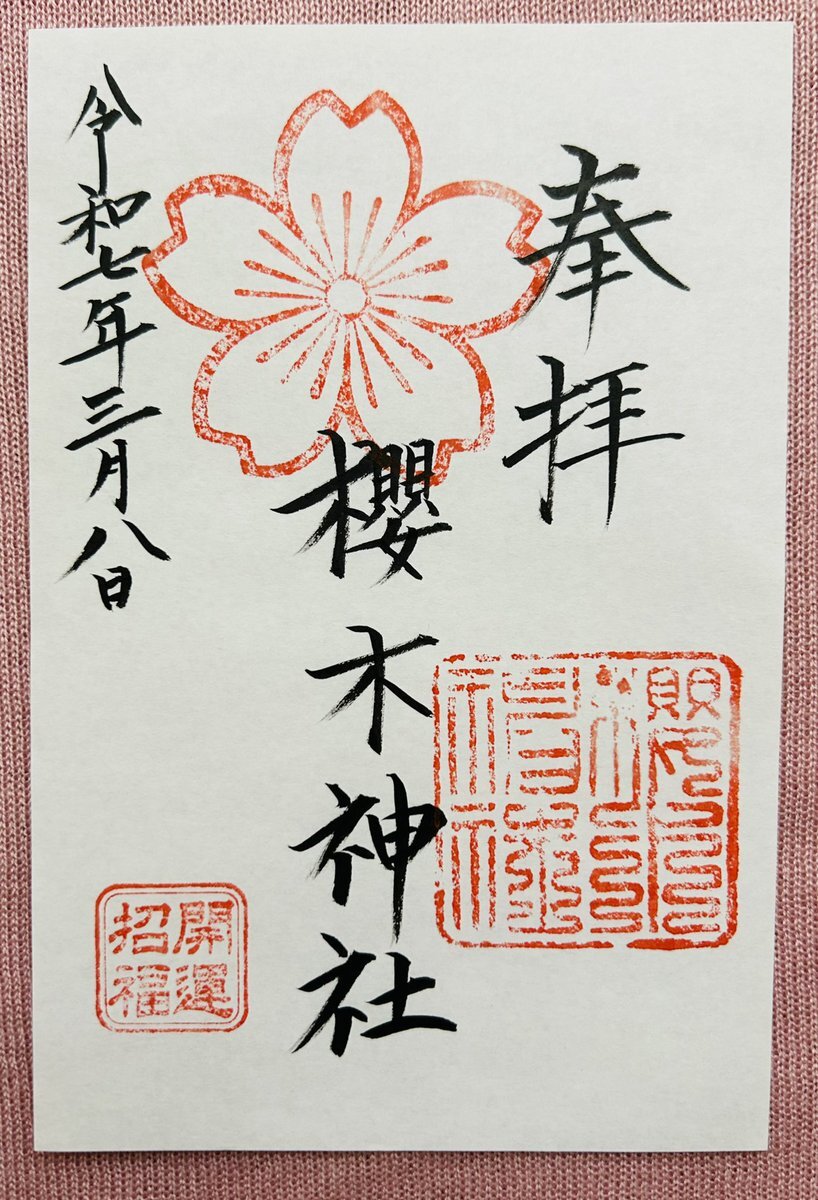 奉拝
櫻木神社
令和七年三月八日
開運
招福